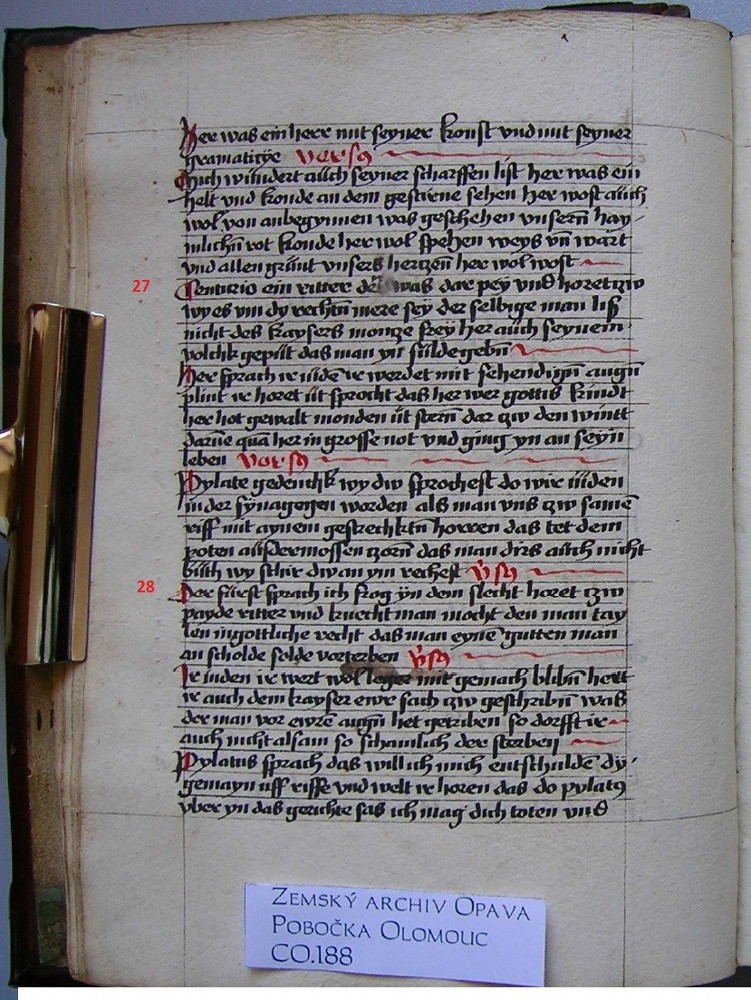 Her was ein herr mit seyner konst vnd mit seyner
gramatitze versꝯ
Mich wundert auch seyner scharffen list her was ein
helt vnd konde an dem gestirne sehen her wost auch
wol von anbegynnen was geschehen vnsern̄ hay
mlichn̄ rot konde her wol spehen weys vn̄ wart
vnd allen grunt vnsers hertzen̄ her wol wost
27
Centurio ein ritter der was dar pey vnd horet zw
wy es vm dy rechtn̄ mere sey der selbige man liß
nicht des kaysers monze frey her auch seynem
volchk geput das man yn fulde gebn̄
Her sprach ir iuden̄ ir werdet mit sehendign̄ augn̄
plint ir horet it sprocht das her wer gottis kindt
her hot gewalt monden̄ it stern̄ dar zw den wintt
darūe qua her in grosse not vnd ging yn an seyn̄
leben versꝯ
Pylate gedenchk wy dw sprochest do wir iuden
in der synagogen worden als man vns zw samē
riff mit aynem gestrechktn̄ horren das tet dem
poten ausdermossen zorn̄ das man dirs auch nicht
buth wy schir dw an ym rechest v̓sꝯ
28
Der furst sprach ich frag yn dem slecht horet zw
payde ritter vnd knecht man mocht den man tay
len ingottliche recht das man eyne gutten man
an scholde solde vorterben v̓sꝯ
Ir iuden ir wert wol leger mit gemach blibn̄ hett
ir auch dem kayser ewr sach zw geschribn̄ was
der man vor ewrē augn̄ het getriben so dorfft ir
auch nicht alsam so schamlich der sterben
Pylatus sprach das will ich mich entschuldē dy
gemayn uff riffe vnd welt ir horen das do pylatꝯ
vber yn das gerichte sas ich mag dich toten vnd
Zemský archiv Opava
Pobočka Olomouc
CO.188